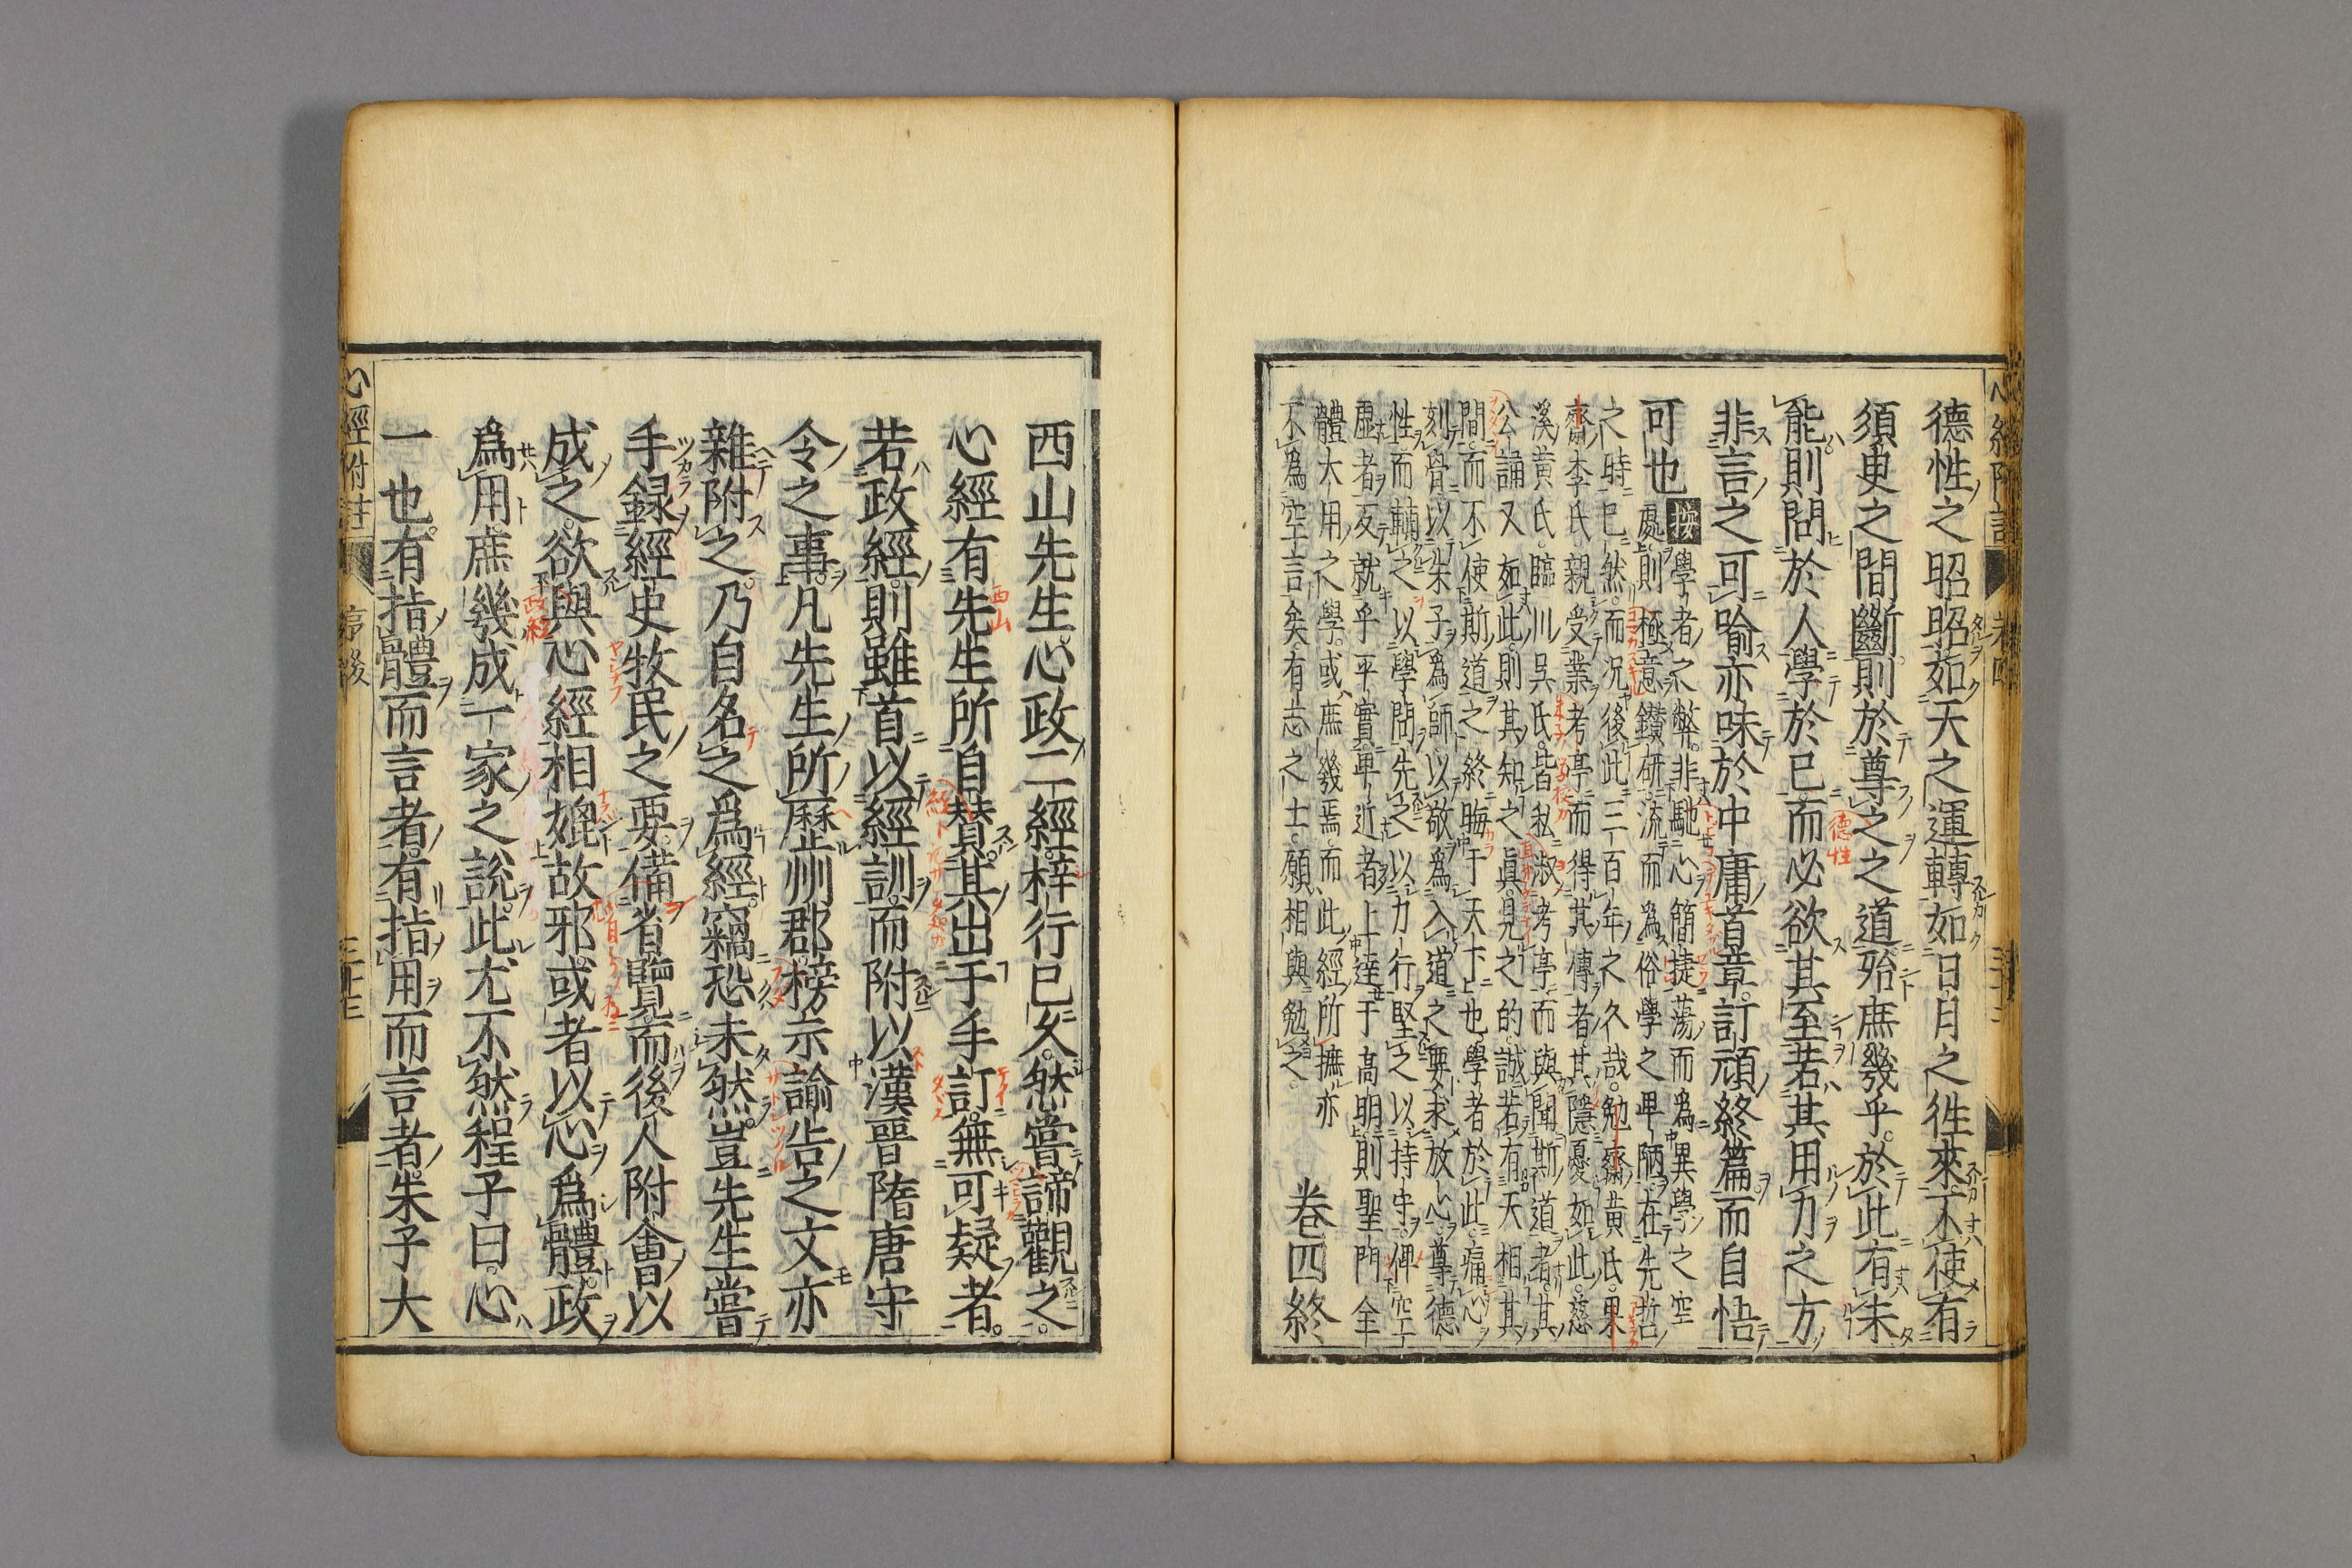 德性之昭昭如天之運轉如日月之徃來不使有
須臾之間斷則於尊之之道殆庶幾乎於此有未
能則問於人學於己而必欲其至若其用力之方
非言之可喻亦味於中庸首章訂頑終篇而自悟
可也
按學者之弊非馳心簡捷蕩而為異學之空
虛則極意鑽研流而為俗學之卑陋在先哲
之時已然而况後此三百年之久哉勉齋黃氏果
齋李氏親受業考亭而得其傳者其隱憂如此慈
溪黃氏臨川吳氏皆私淑考亭而與聞斯道者其
公誦又如此則其知之眞見之的誠若有天相其
間而不使斯道之終晦于天下也學者於此痛心
刻骨以朱子爲師以敬爲入道之要求放心尊德
性而輔之以學問先之以力行堅之以持守俾空
虛者反就乎平實卑近者上達于高明則聖門全
體大用之學或庶幾焉而此經所撫亦
不爲空言矣有志之士願相與勉之
卷四終
心經附註
卷四
西山先生心政二經梓行已久然嘗諦觀之
心經有先生所自賛其出于手訂無可疑者
若政經則雖首以經訓而附以漢晉隋唐守
令之事凡先生所歷州郡榜示諭告之文亦
雜附之乃自名之爲經竊恐未然豈先生嘗
手録經史牧民之要備省覽而後人附會以
成之欲與心經相媲故邪或者以心爲體政
爲用庶幾成一家之說此尤不然程子曰心
一也有指體而言者有指用而言者朱子大
心經附註
序後
三十三
西山
德性
政經